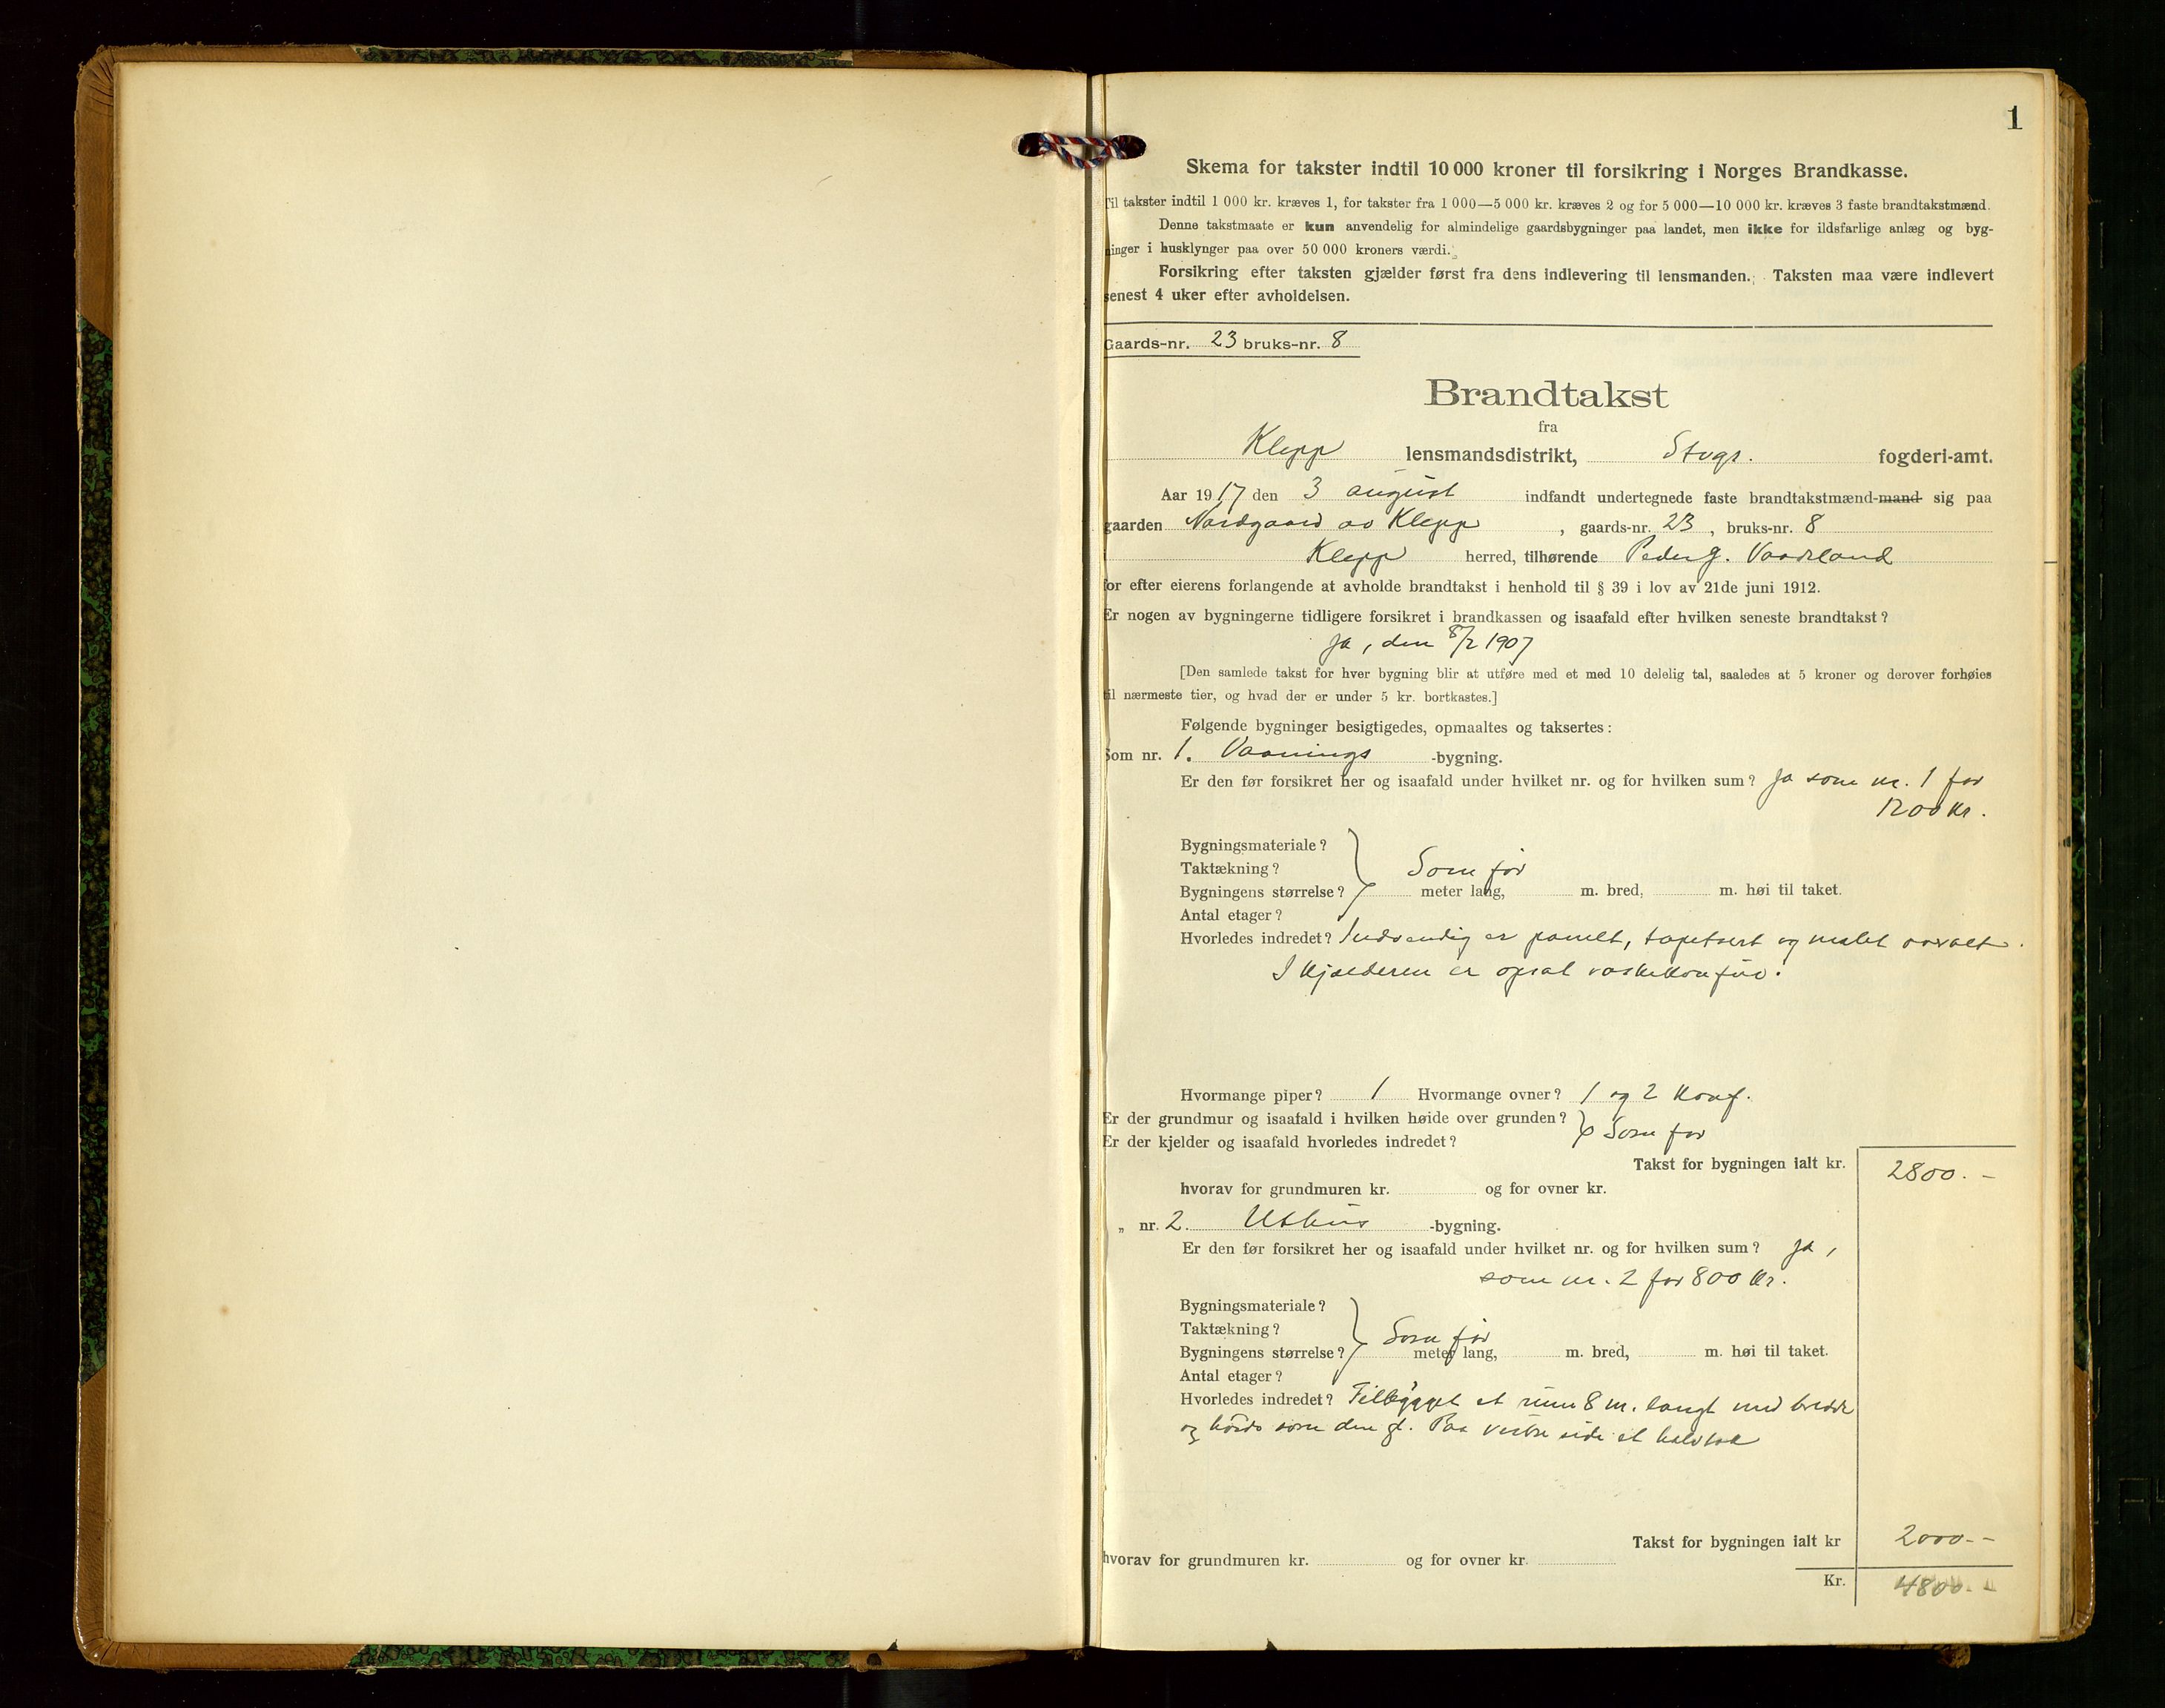 1
Skema for takster indtil 10 000 kroner til forsikring i Norges Brandkasse.
Til takster indtil 1 000 kr. kræves 1, for takster fra 1 000—5 000 kr. kræves 2 og for 5 000—10 000 kr. kræves 3 faste brandtakstmænd.
Denne takstmaate er kun anvendelig for almindelige gaardsbygninger paa landet, men ikke for ildsfarlige anlæg og byg-
ninger i husklynger paa over 50 000 kroners værdi.
Forsikring efter taksten gjælder først fra dens indlevering til lensmanden. Taksten maa være indlevert
senest 4 uker efter avholdelsen.
Gaards-nr. 23 bruks-nr. 8
Brandtakst
fra
Klepp lensmandsdistrikt, Stvgr. fogderi-amt.
Aar 1917 den 3 august indfandt undertegnede faste brandtakstmænd-mand sig paa
gaarden Nordgaard av Klepp, gaards-nr. 23, bruks-nr. 8
Klepp herred, tilhørende Peder G. Vaadeland
for efter eierens forlangende at avholde brandtakst i henhold til § 39 i lov av 21de juni 1912.
Er nogen av bygningerne tidligere forsikret i brandkassen og isaafald efter hvilken seneste brandtakst?
Ja, den 8/2 1907
[Den samlede takst for hver bygning blir at utføre med et med 10 delelig tal, saaledes at 5 kroner og derover forhøies
til nærmeste tier, og hvad der er under 5 kr. bortkastes.]
Følgende bygninger besigtigedes, opmaaltes og taksertes:
Som nr. 1. Vaanings -bygning.
Er den før forsikret her og isaafald under hvilket nr. og for hvilken sum? Ja som nr. 1 for
1200 kr.
Bygningsmateriale?
Taktækning? Som før
Bygningens størrelse? meter lang, m. bred, m. høi til taket.
Antal etager?
Hvorledes indredet? Indvendig er panelt, tapetsert og malet overalt.
I kjælderen er opsat vaskekomfur.
Hvormange piper? 1 Hvormange ovner? 1 og 2 komf.
Er der grundmur og isaafald i hvilken høide over grunden?
Er der kjelder og isaafald hvorledes indredet? Som før
Takst for bygningen ialt kr. 2800.-
hvorav for grundmuren kr. og for ovner kr.
„ nr. 2. Uthus -bygning.
Er den før forsikret her og isaafald under hvilket nr. og for hvilken sum? Ja,
som nr. 2 for 800 kr.
Bygningsmateriale?
Taktækning? Som før
Bygningens størrelse? meter lang, m. bred, m. høi til taket.
Antal etager?
Hvorledes indredet? Tilbygget et rum 8 m. langt med bredde
og høide som den gl. Paa vestre side et halvtak
Takst for bygningen ialt kr 2000.-
hvorav for grundmuren kr. og for ovner kr.
Kr. 4800.-